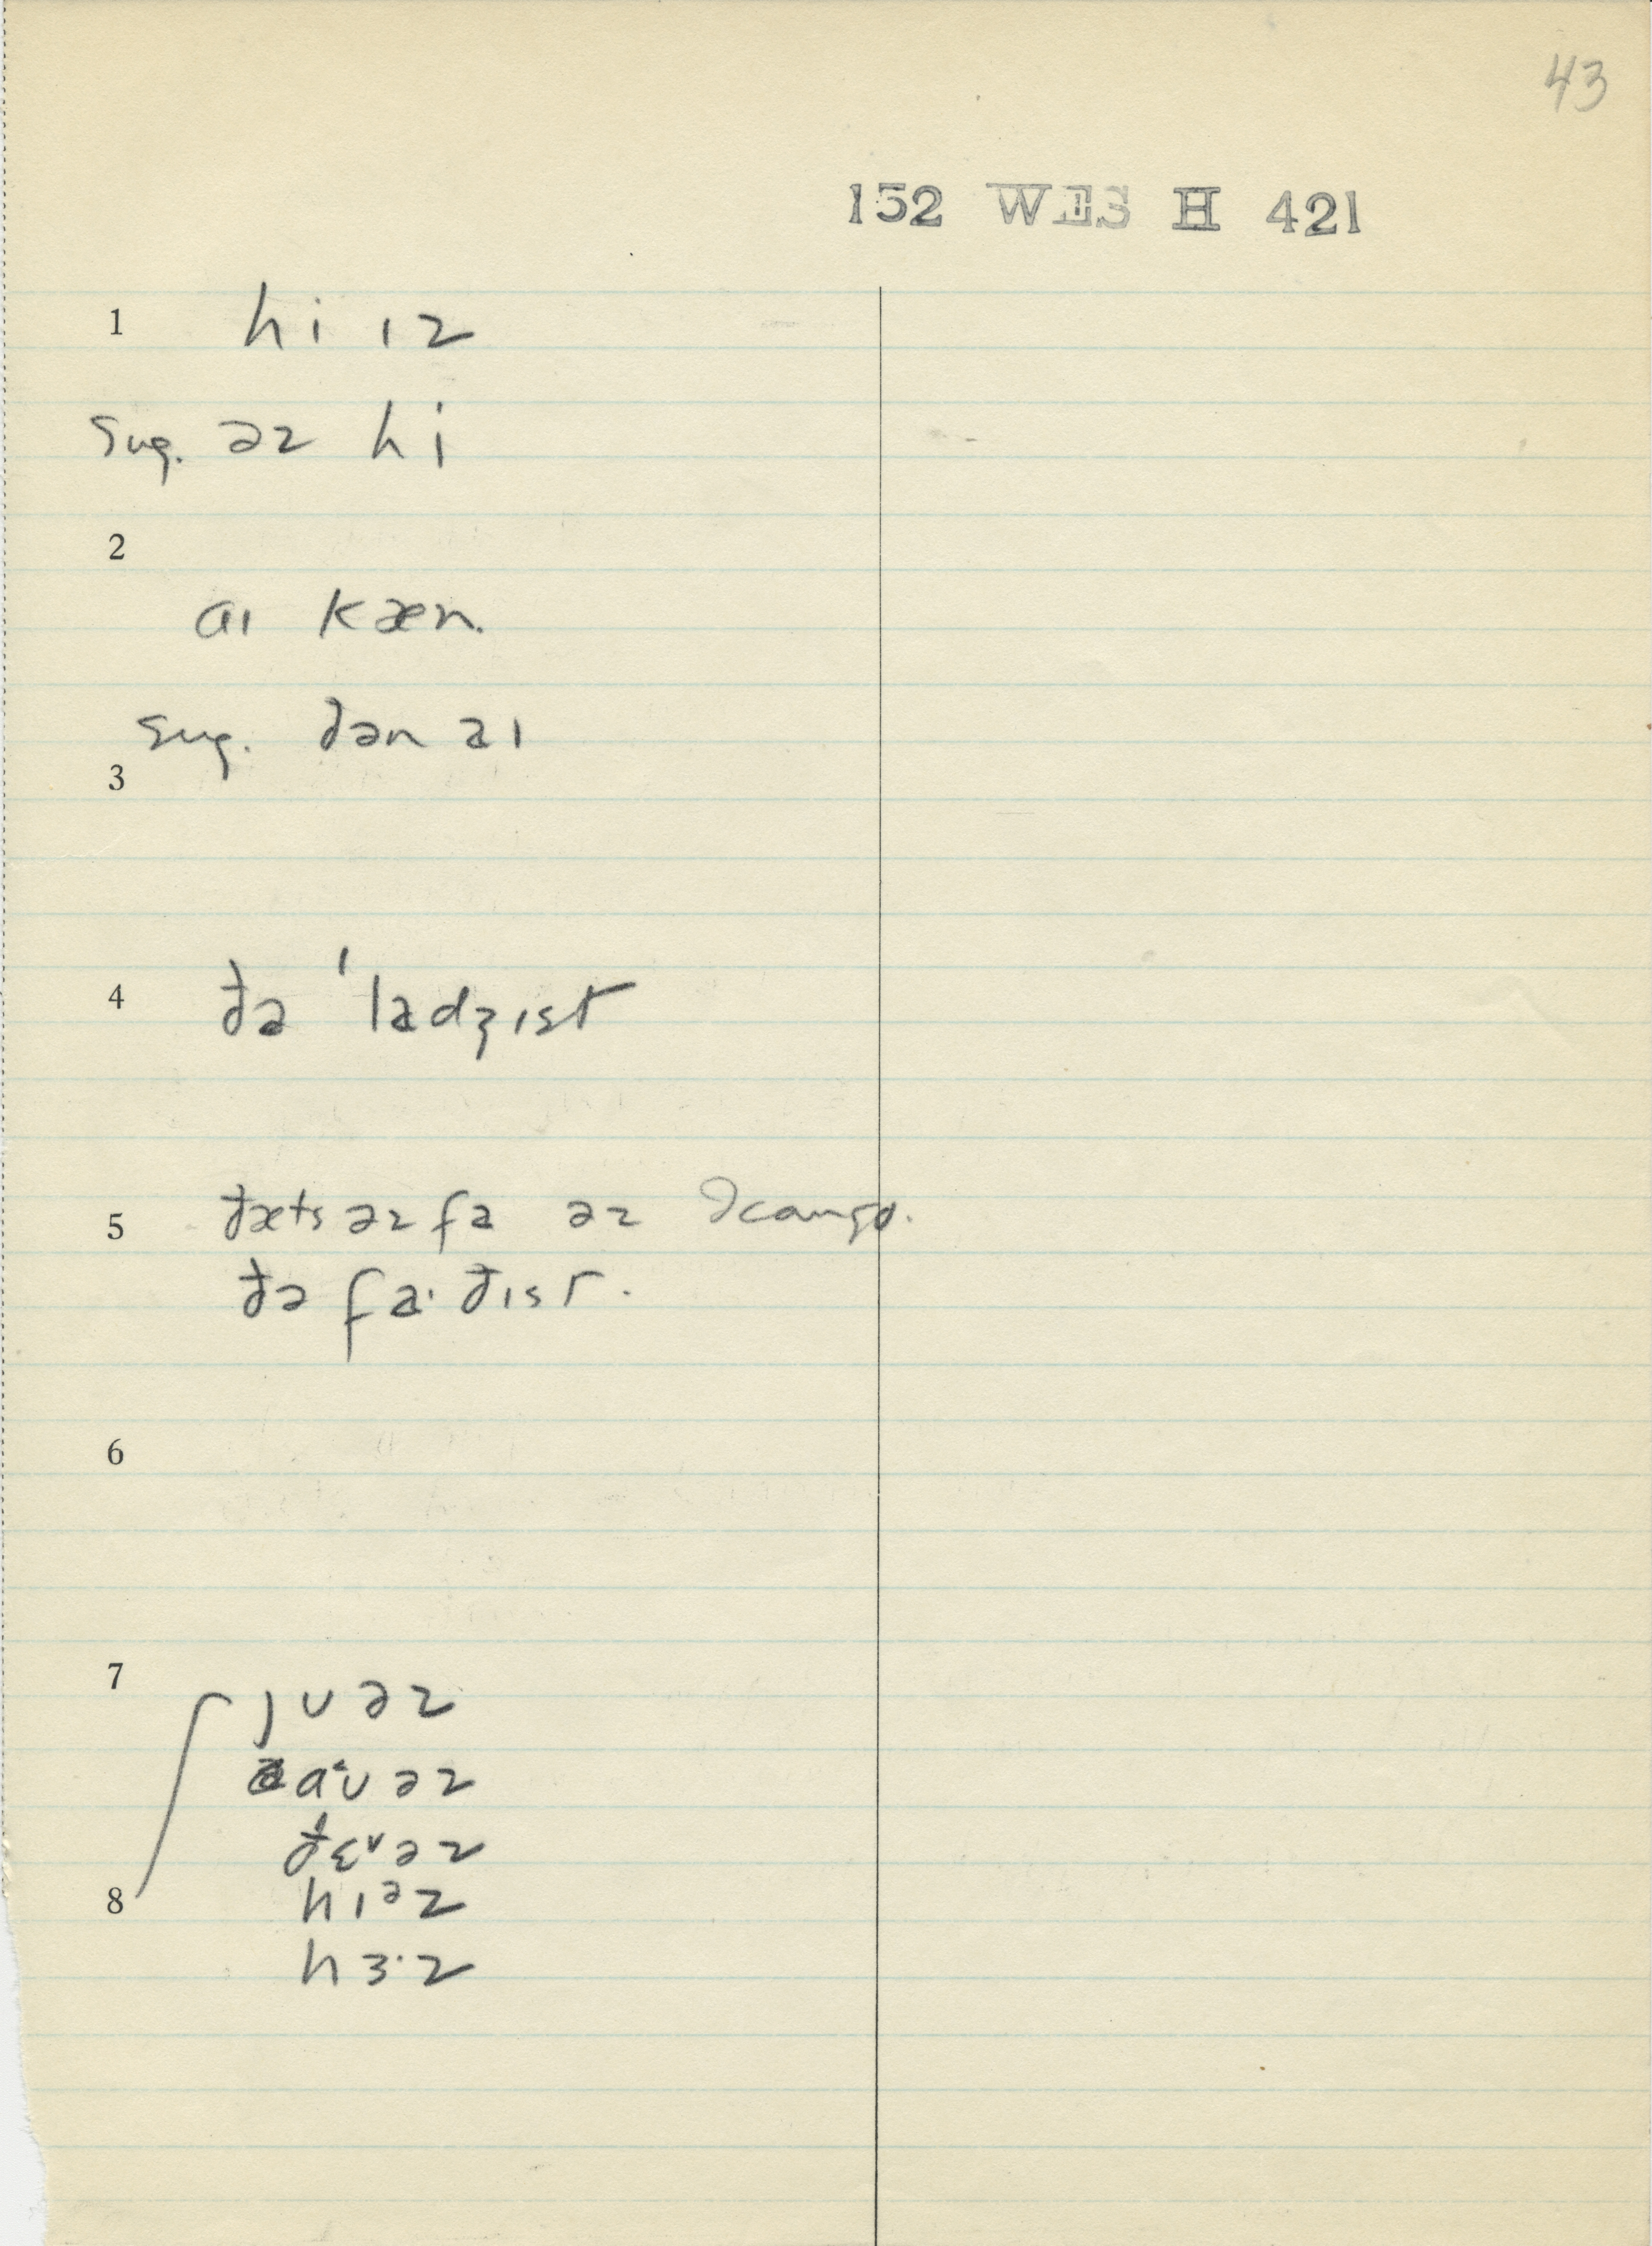 43
152 WES H 421
1 hi ɪz
sug. əz hi
2
aɪ kæn.
sug. ðən aɪ
3
4 ðə ˈladʒɪst
5 ðæts əz fa əz ə c a n g o.
ðə fa· ðɪst.
6
7 jʊ əz
aᶷʊ əz
ðɛᵛ əz
8 hɪᵊz
hɜ·z